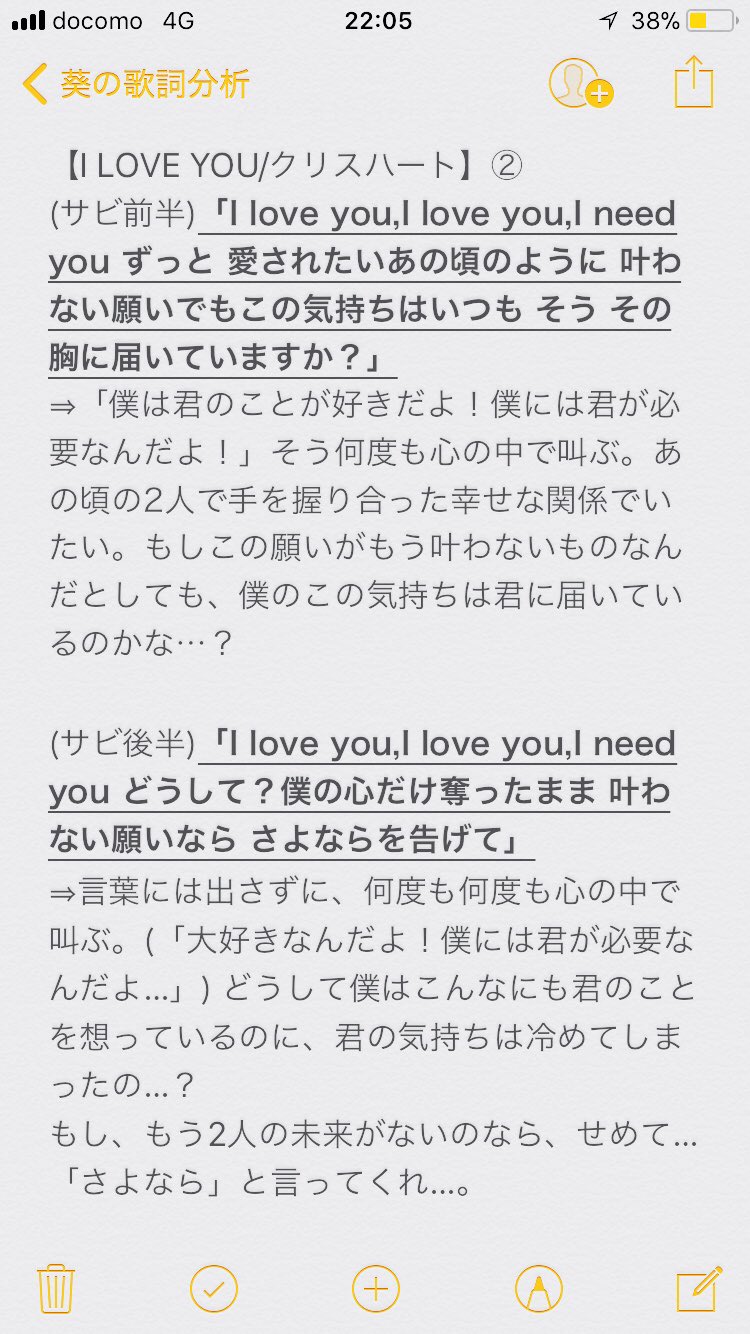 docomo 4G 22:05 38%
葵の歌詞分析
【I LOVE YOU/クリスハート】②
(サビ前半)「I love you,I love you,I need
you ずっと 愛されたいあの頃のように 叶わ
ない願いでもこの気持ちはいつも そう その
胸に届いていますか？」
⇒「僕は君のことが好きだよ！僕には君が必
要なんだよ！」そう何度も心の中で叫ぶ。あ
の頃の2人で手を握り合った幸せな関係でい
たい。もしこの願いがもう叶わないものなん
だとしても、僕のこの気持ちは君に届いてい
るのかな…？
(サビ後半)「I love you,I love you,I need
you どうして？僕の心だけ奪ったまま 叶わ
ない願いなら さよならを告げて」
⇒言葉には出さずに、何度も何度も心の中で
叫ぶ。(「大好きなんだよ！僕には君が必要な
んだよ...」) どうして僕はこんなにも君のこと
を想っているのに、君の気持ちは冷めてしま
ったの...？
もし、もう2人の未来がないのなら、せめて...
「さよなら」と言ってくれ...。